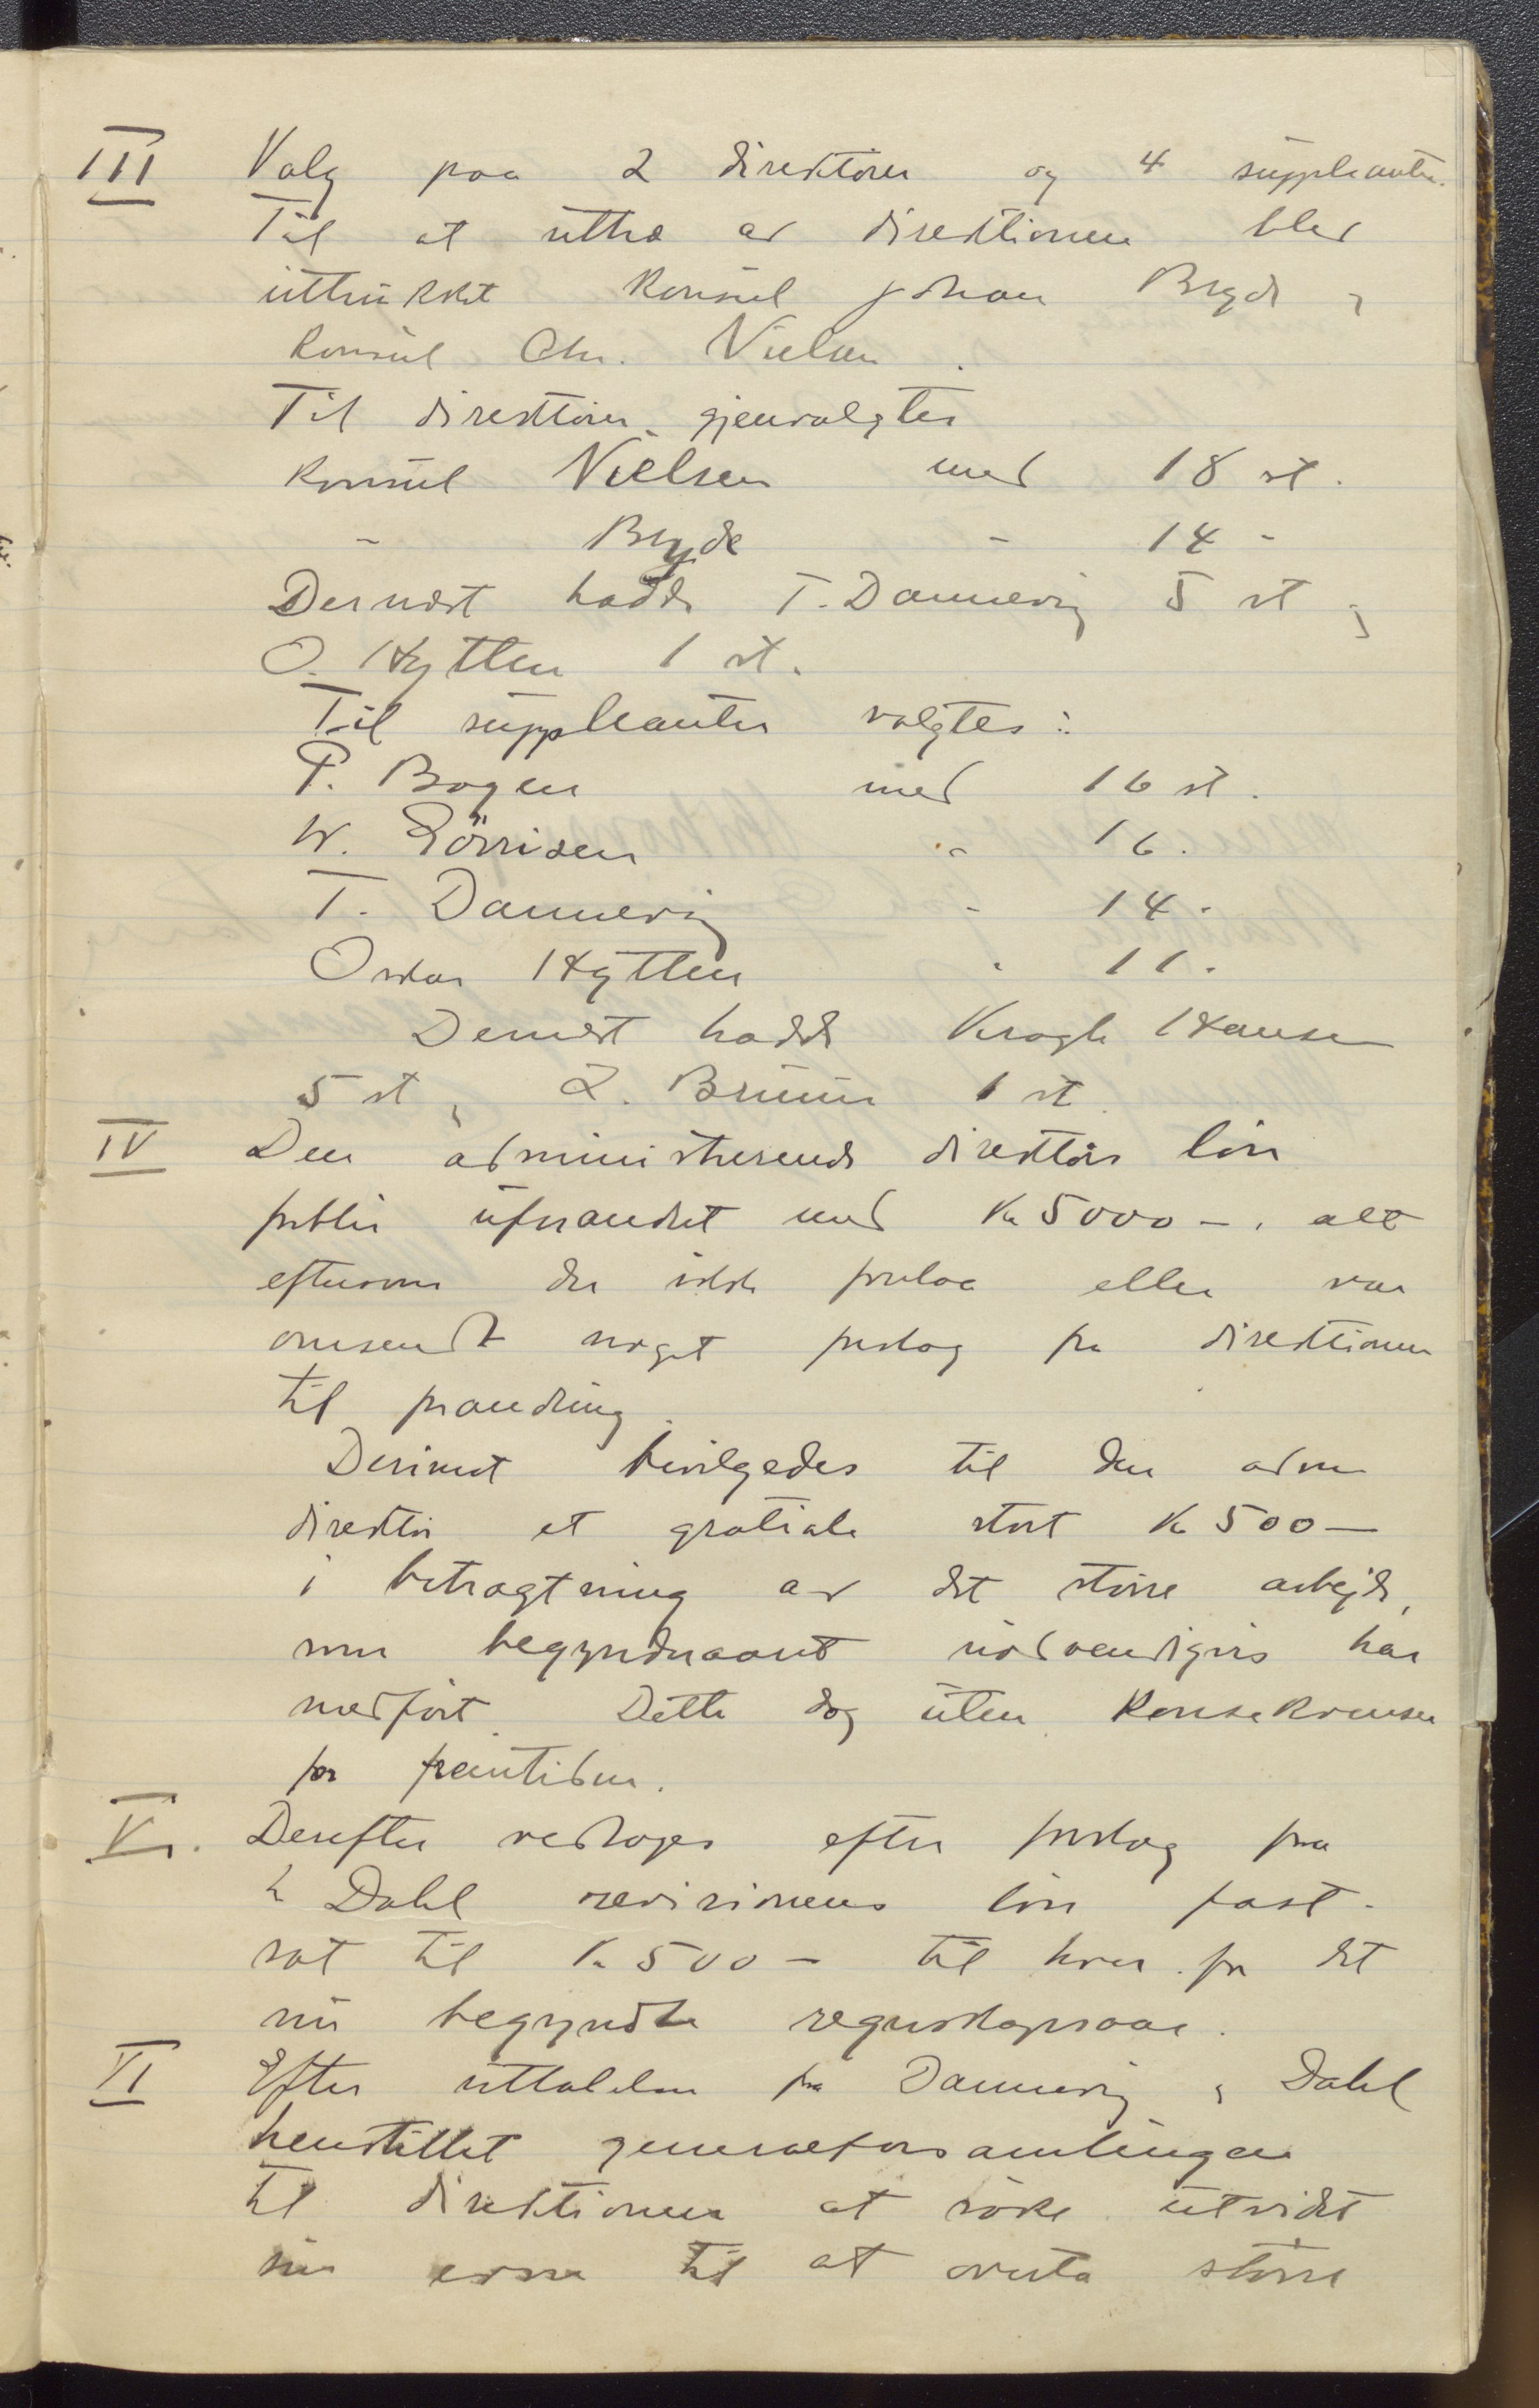 III Valg paa 2 direktörer og 4 suppleanter.
Til at uttræ av direktionen blev
uttrukket konsul Johan Bryde og
konsul Chr. Nielsen.
Til direktörer gjenvalgtes
konsul Nielsen med 18 st.
- Bryde - 14 -
Dernæst hadde T. Dannevig 5 st og
O. Hytten 1 st.
Til suppleanter valgtes:
P. Bogen med 16 st.
W. Görrisen - 16.
T. Dannevig - 14 -
Oskar Hytten - 11 -
Dernæst hadde Kragh Hansen
5 st og L. Bruun 1 st.
IV Den administrerende direktörs lön
forblir uforandret med Kr 5000-, alt
eftersom der ikke forelaa eller var
omsendt noget forslag fra direktionen
til forandring.
Derimot bevilgedes til den adm
direktör et gratiale stort Kr 500-
i betragtning av det större arbejde,
som begyndnaaret nödvendigvis har
medfört. Dette dog uten konsekvenser
for fremtiden.
V. Derefter vedtoges efter forslag fra
hr Dahl revisionens lön fast-
sat til Kr 500- til hver for det
nu begyndte regnskapsaar.
VI Efter uttalelser fra Dannevig og Dahl
henstillet generalforsamlingen
til direktionen at söke utvidet
sin evne til at overta större